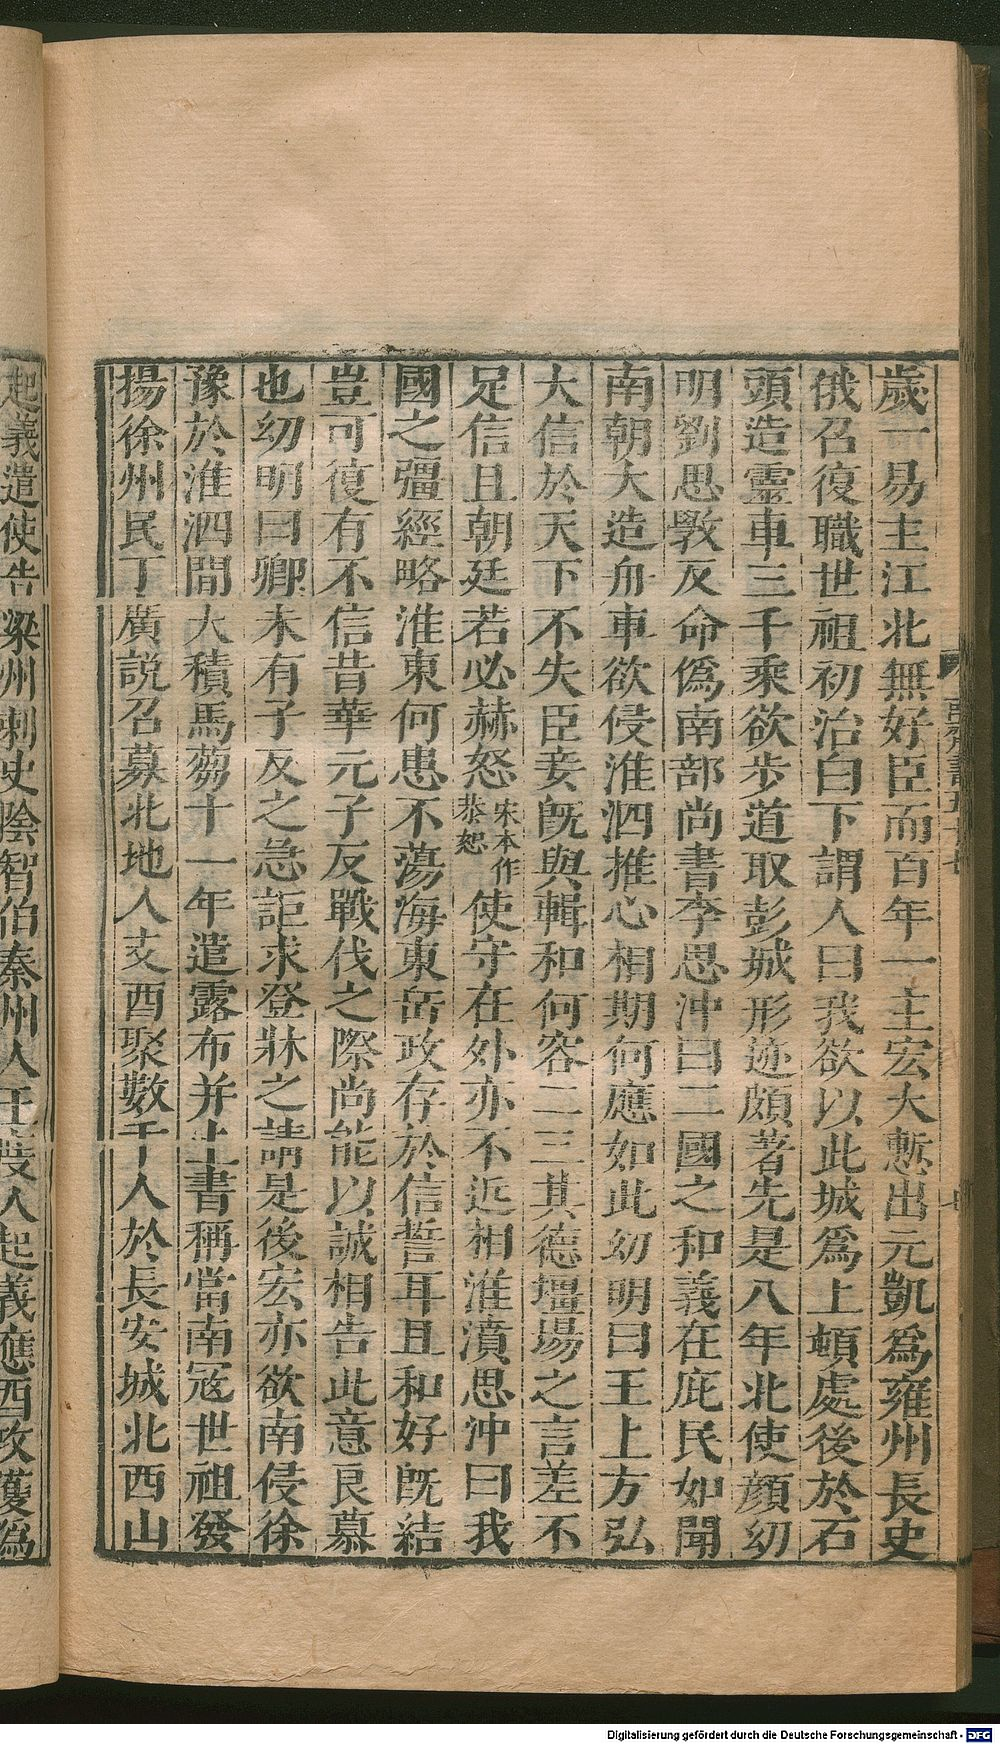 歲一易主江北無好臣而百年一主宏大慙出元凱爲雍州長史
俄召復職世祖初治白下謂人曰我欲以此城爲上頓處後於石
頭造靈車三千乘欲步道取彭城形迹頗著先是八年北使顔幼
明劉思斆反命僞南部尚書李思沖曰二國之和義在庇民如聞
南朝大造舟車欲侵淮泗推心相期何應如此幼明曰主上方弘
大信於天下不失臣妾旣與輯和何容二三其德壃場之言差不
足信且朝廷若必赫怒宋本作恭恕使守在外亦不近相淮濆思沖曰我
國之彊經略淮東何患不蕩海東岳政存於信誓耳且和好旣結
豈可復有不信昔華元子反戰伐之際尚能以誠相告此意良慕
也幼明曰卿未有子反之急詎求登牀之請是後宏亦欲南侵徐
豫於淮泗間大積馬蒭十一年遣露布并上書稱當南寇世祖發
揚徐州民丁廣説召募北地人支酉聚數千人於長安城北西山
起義遣使告梁州刺史陰智伯秦州人王度人起義應酉攻獲僞
Digitalisierung gefördert durch die Deutsche Forschungsgemeinschaft - DFG